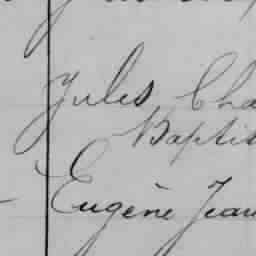 Jules Cha
Baptis
Eugène Jean